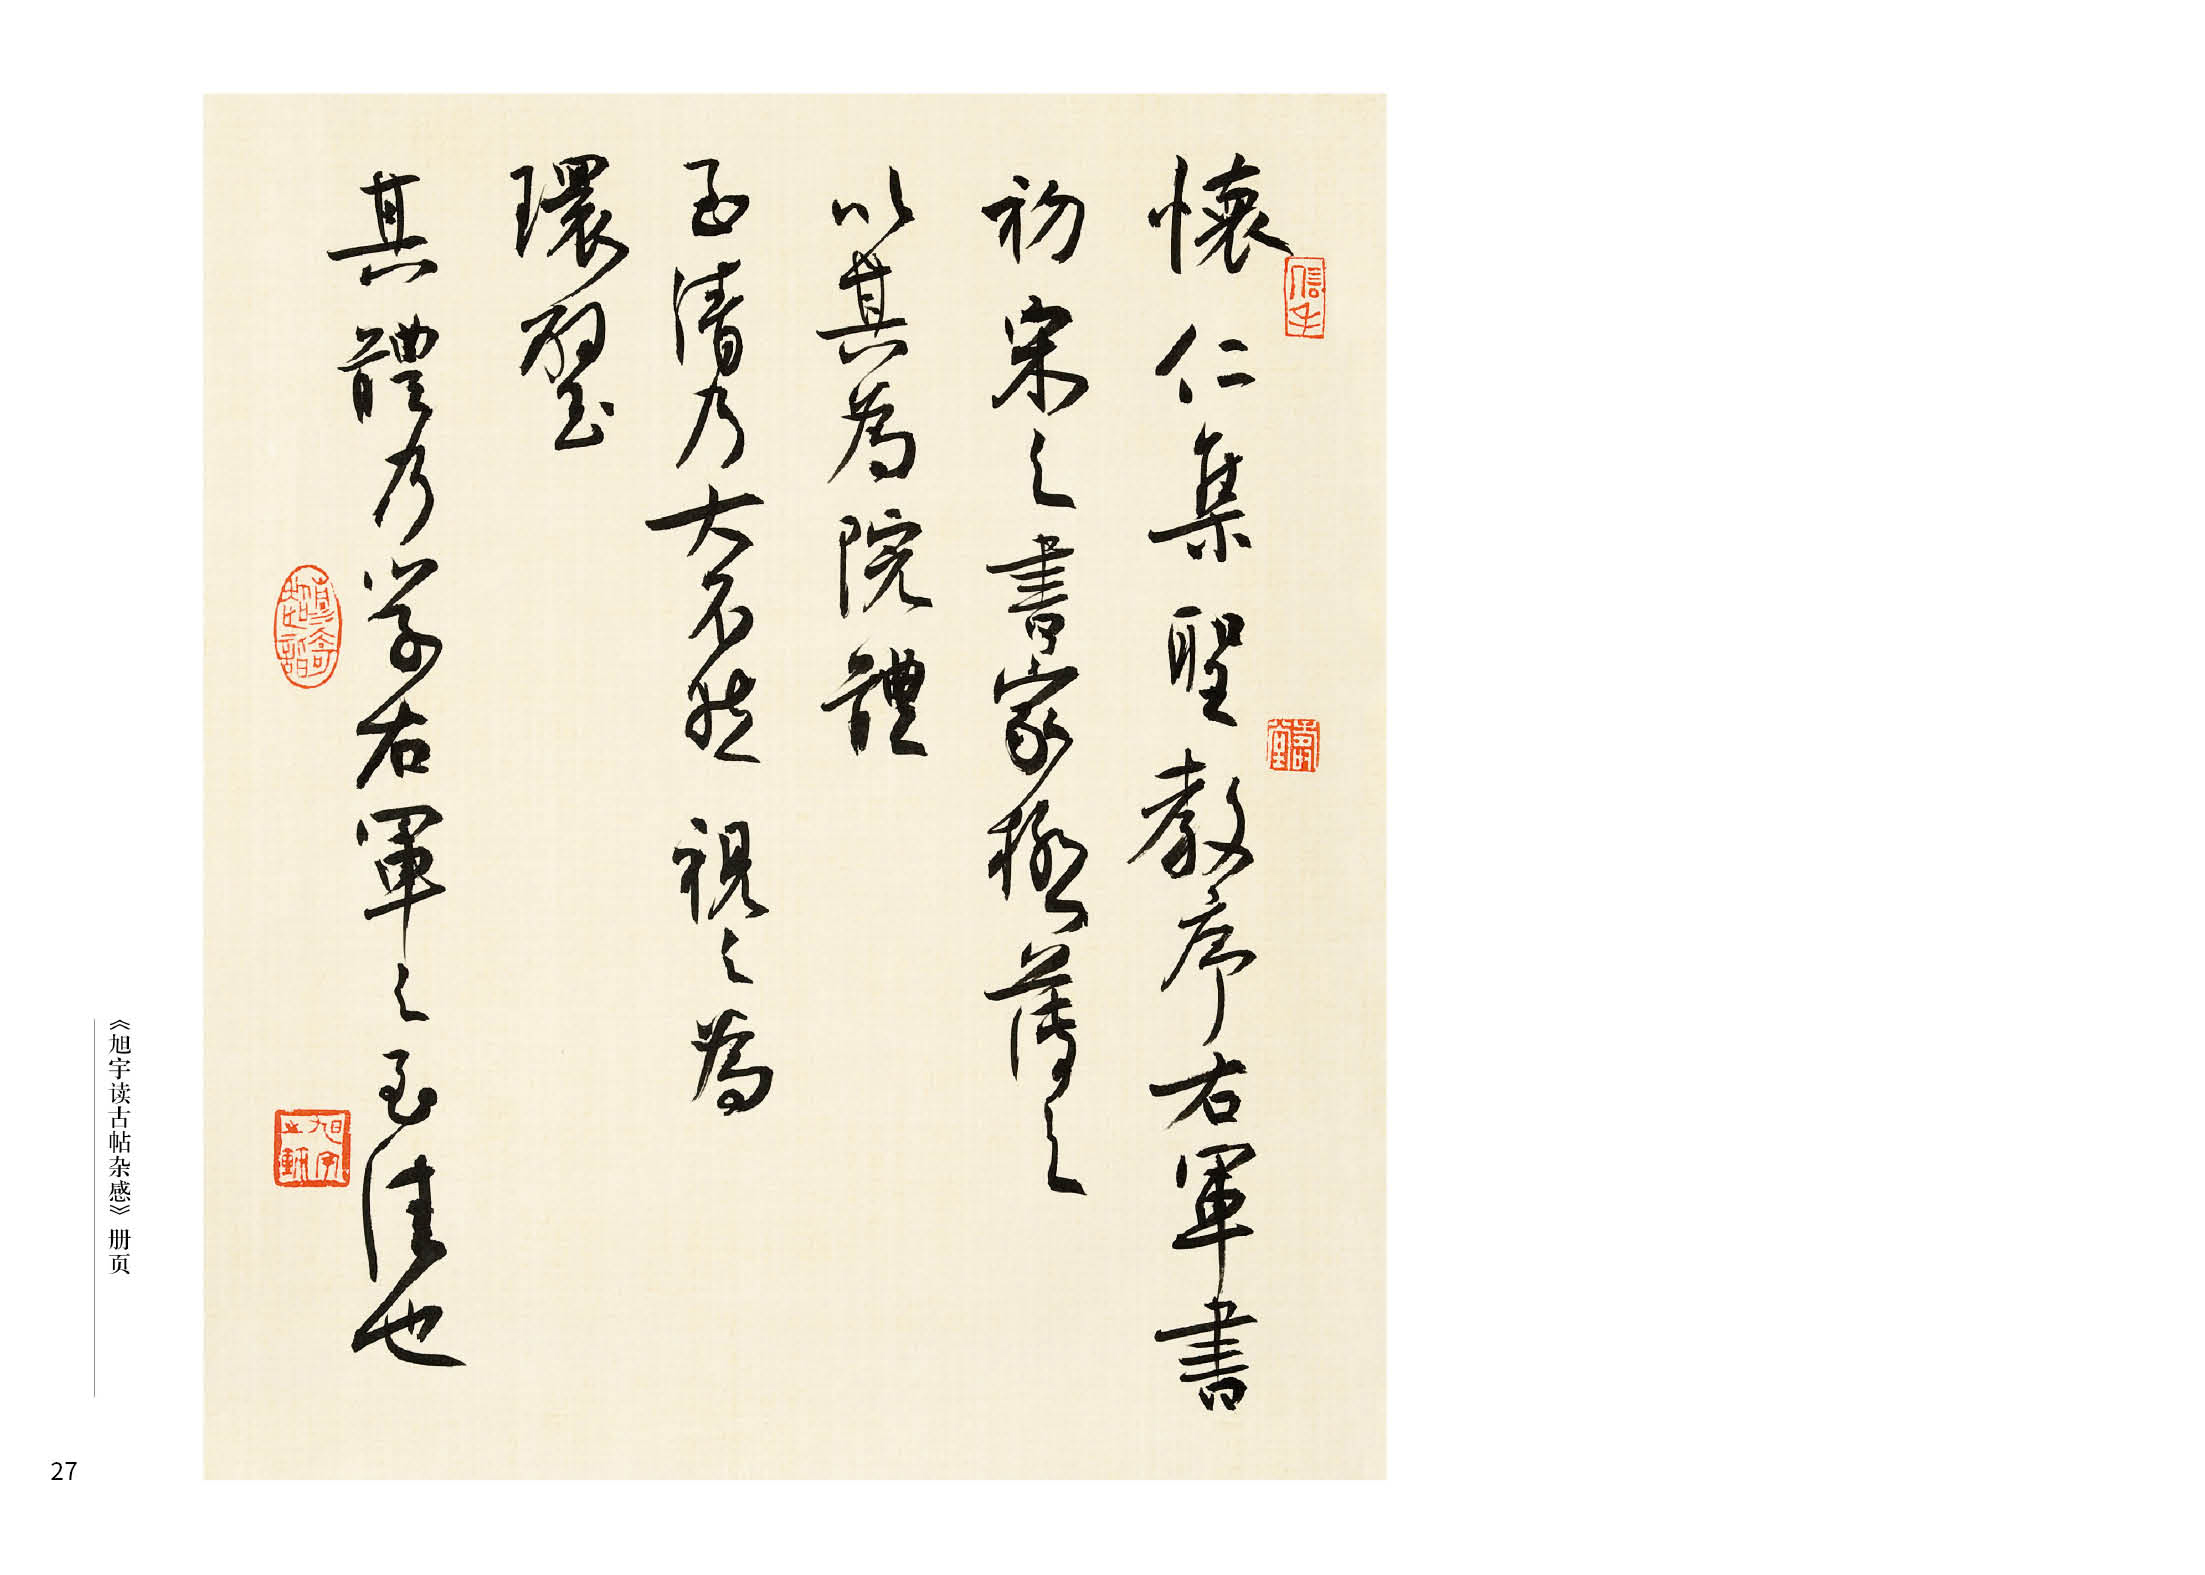 懷仁集聖教序右軍書
初宋之書家極薄之
以其為院體
至清乃大不然視之為
環璧
其體乃學右軍之至佳也
旭宇
《旭宇读古帖杂感》册页
27